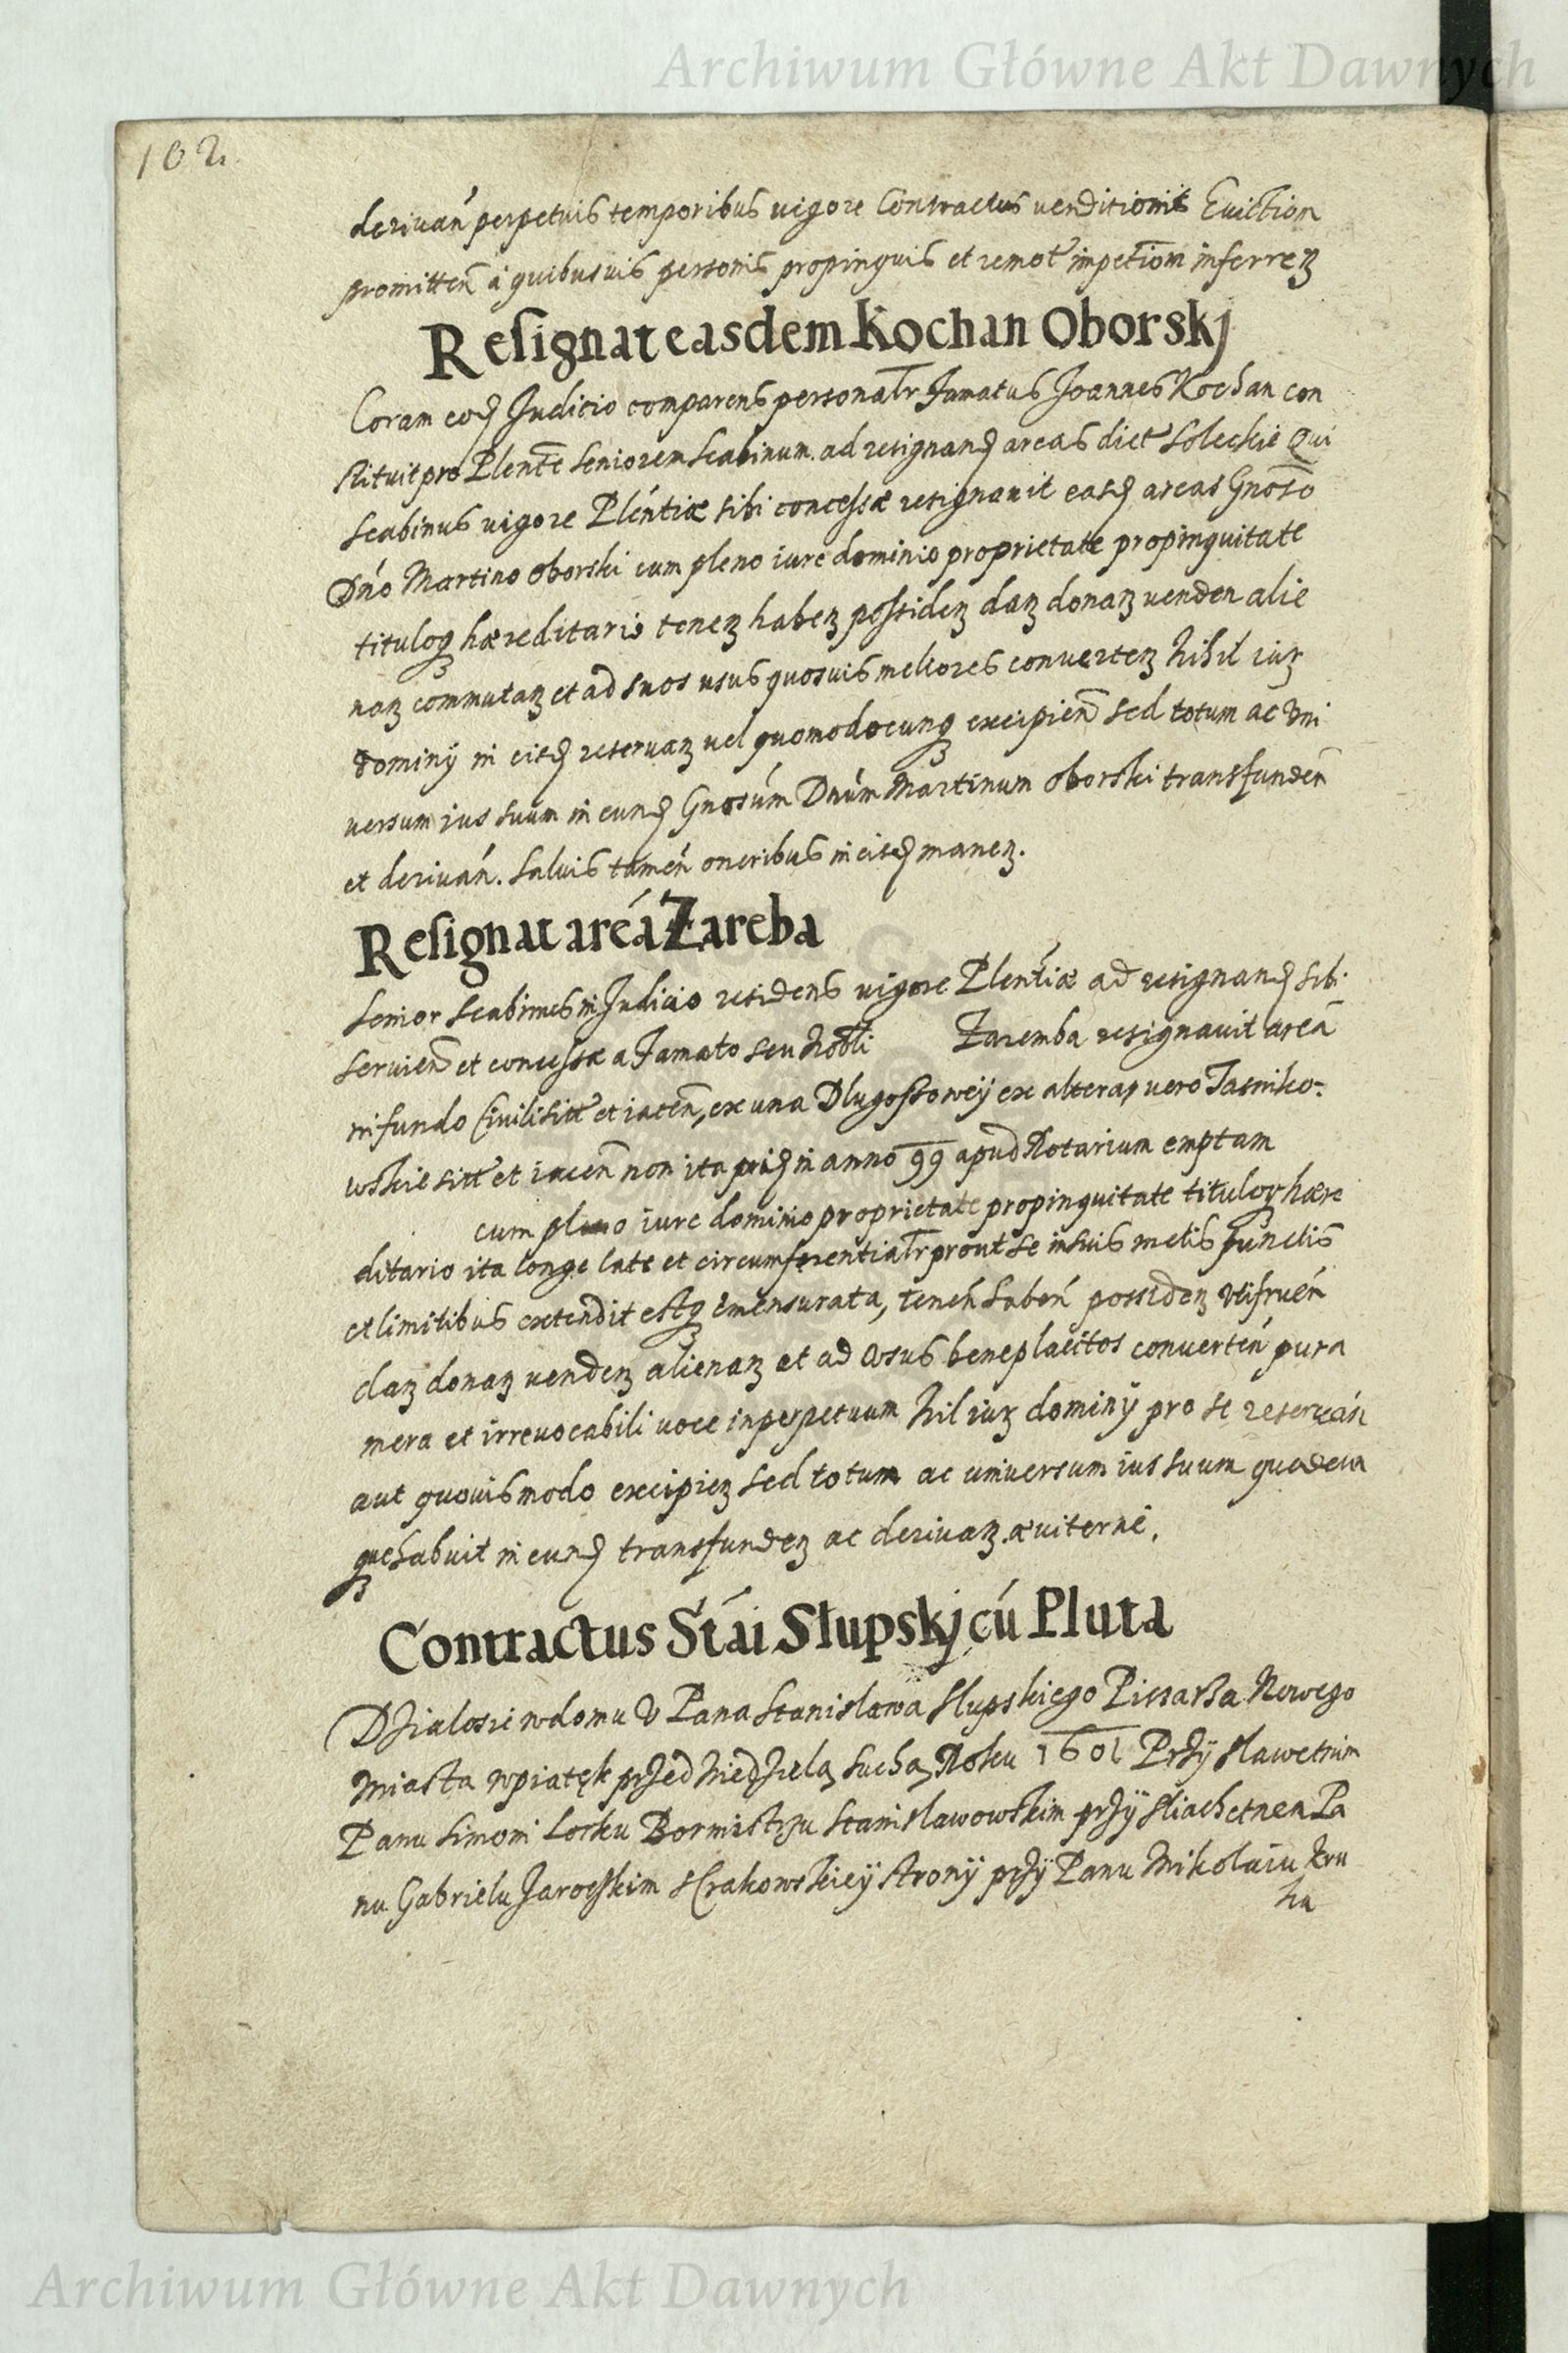 Archiwum Główne Akt Dawnych
102.
derivań perpetuis temporibus vigore Contractus venditionis Eviction
promitteñ a quibusvis personis propinquis et remot impetiom inferreȝ
Resignat easdem Kochan Oborskj
Coram eod Judicio comparens personalr Famatus Joannes Kochan con
stituit pro Plente Seniorem Scabinum ad resignand areas dict Soleckie Qui
Scabinus vigore Plentiæ sibi concessæ resignavit easd areas Gnoso
Dno Martino Oborski cum pleno iure dominio proprietate propinquitate
tituloqȝ hæreditario teneȝ habeȝ possideȝ daȝ donaȝ venden alie
naȝ commutaȝ et ad suos usus quosvis meliores converteȝ Nihil iuȝ
dominÿ in eisd reservaȝ vel quomodocunqȝ excipieñ sed totum ac Vni
versum ius suum in eund Gnosum Dnum Martinum Oborski transfundeñ
et derivań. Salvis tameń oneribus in eisd maneȝ.
Resignat areá Zareba
Senior Scabinus in Judicio residens vigore Plentiæ ad resignand sibi
servień et concessæ a Famato seu Nobli Zaremba resignavit areā
in fundo Civili sitt et iaceñ, ex una Dlugossowey ex altera vero Jasniko-
wskie sitt et iaceñ non ita prid in anno 99 apud Notarium emptam
cum pleno iure dominio proprietate propinquitate tituloqȝ hære
ditario ita longe late et circumferentialr prout se in suis metis punctis
et limitibus extendit estqȝ emensurata, teneń habeń possideȝ vtifrueń
daȝ donaȝ vendeȝ alienaȝ et ad Vsus beneplacitos converteń pura
mera et irrevocabili voce in perpetuum Nil iuȝ dominÿ pro se reservań
aut quovismodo excipieȝ sed totum ac universum ius suum quodcun
qȝ habuit in eund transfundeȝ ac derivaȝ æviterne.
Contractus Stái Słupskj cú Pluta
Działosie w domu V Pana Stanisława Słupskiego Pissarza Nowego
Miasta w piatęk przed Niedzielą Suchą Roku 1601 Przÿ sławetnim
Panu Simoni Locku Bormistrzu Stanisławowskim przÿ Sliachetnem Pa
nu Gabrielu Jarockim s Crakowskieÿ stronÿ przÿ Panu Mikolaiu Kru
ku
Archiwum Główne Akt Dawnych